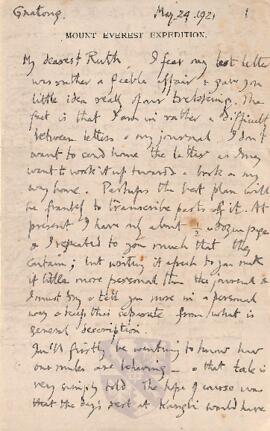 Gnatong. May 24. 1921 1
MOUNT EVEREST EXPEDITION.
My dearest Ruth, I fear my last letter
was rather a feeble affair & gave you
little idea really of our trekking. The
fact is that I am in rather a difficulty
between letters & my journal. I don't
want to send home the latter as I may
want to work it up towards a book on my
way home. Perhaps the best plan will
be for to transcribe parts of it. At
present I have only about ½ a dozen pages
& I repeated to you much that they
contain; but writing it afresh to you makes
it little more personal than the journal &
I must try & tell you more in a personal
way & keep this separate from what is
general description.
You'll firstly be wanting to know how
our mules are behaving — & that tale is
very simply told. The hope of course was
that the day's rest at would have